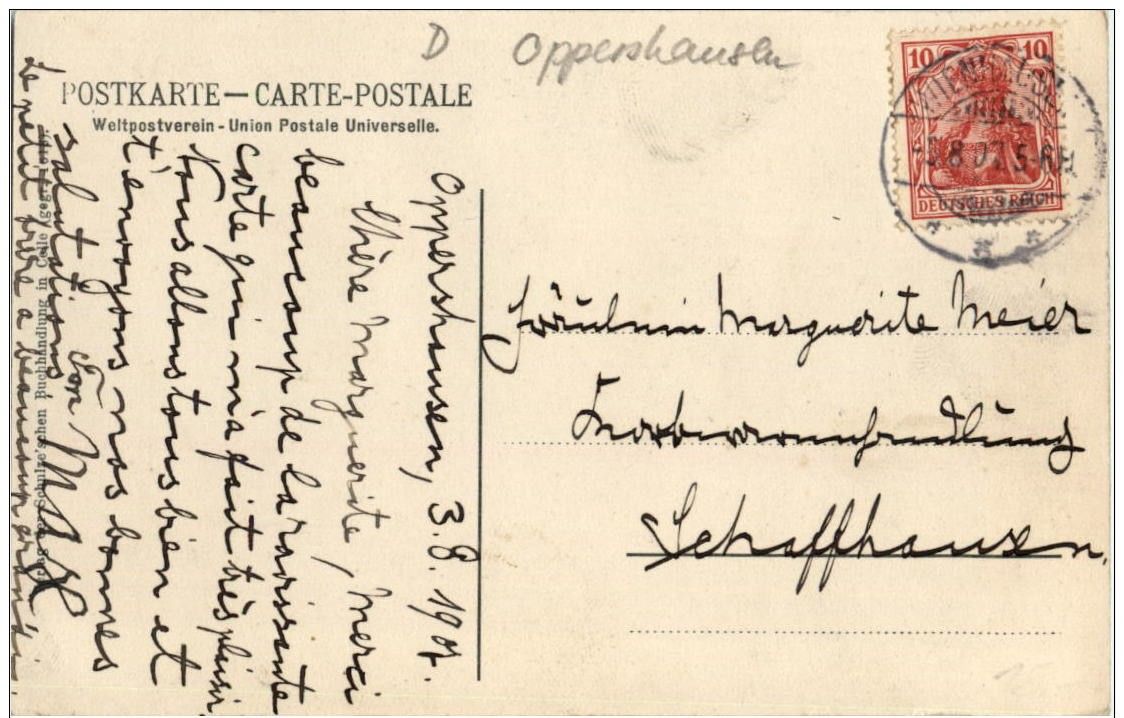 D Oppershausen
POSTKARTE — CARTE-POSTALE
Weltpostverein - Union Postale Universelle.
10 10
DEUTSCHES REICH
8.07. 5-6N
Oppershausen, 3.8.1907.
Chère Marguerite, Merci
beaucoup de la ravissante
carte qui m'a fait très plaisir.
Nous allons tous bien et
t'envoyons nos bonnes
salutations,
Le petit frère a beaucoup grandi.
Schulze'schen Buchhandlung in Celle (gegr.
Fräulein Marguerite Meier
Korbwarenhandlung
Schaffhausen.